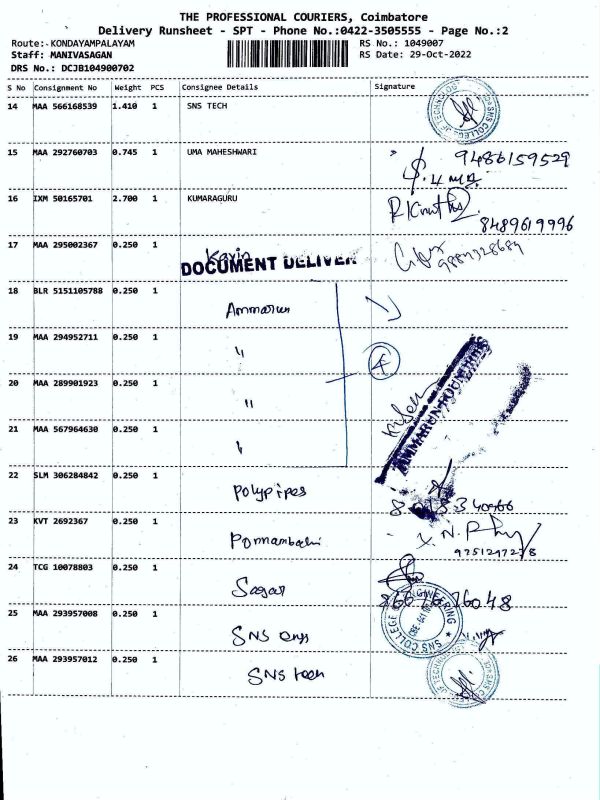 THE PROFESSIONAL COURIERS, Coimbatore
Delivery Runsheet - SPT - Phone No.:0422-3505555 - Page No.:2
Route:-KONDAYAMPALAYAM RS No.: 1049007
Staff: MANIVASAGAN RS Date: 29-Oct-2022
DRS No.: DCJB104900702
S No Consignment No Weight PCS Consignee Details Signature
14 MAA 566168539 1.410 1 SNS TECH
15 MAA 292760703 0.745 1 UMA MAHESHWARI 9486159529
16 IXM 50165701 2.700 1 KUMARAGURU
8489619996
17 MAA 295002367 0.250 1 Kavin
DOCUMENT DELIVER
18 BLR 5151105788 0.250 1 Ammarun
19 MAA 294952711 0.250 1 "
4
20 MAA 289901923 0.250 1 "
AMMARUN FOUNDRIES
21 MAA 567964630 0.250 1 "
22 SLM 306284842 0.250 1 Polypipes
23 KVT 2692367 0.250 1 Ponnambalam
9751297278
24 TCG 10078803 0.250 1 Sagar
8667676048
25 MAA 293957008 0.250 1 SNS engg
SNS COLLEGE OF ENGINEERING
26 MAA 293957012 0.250 1 SNS tech